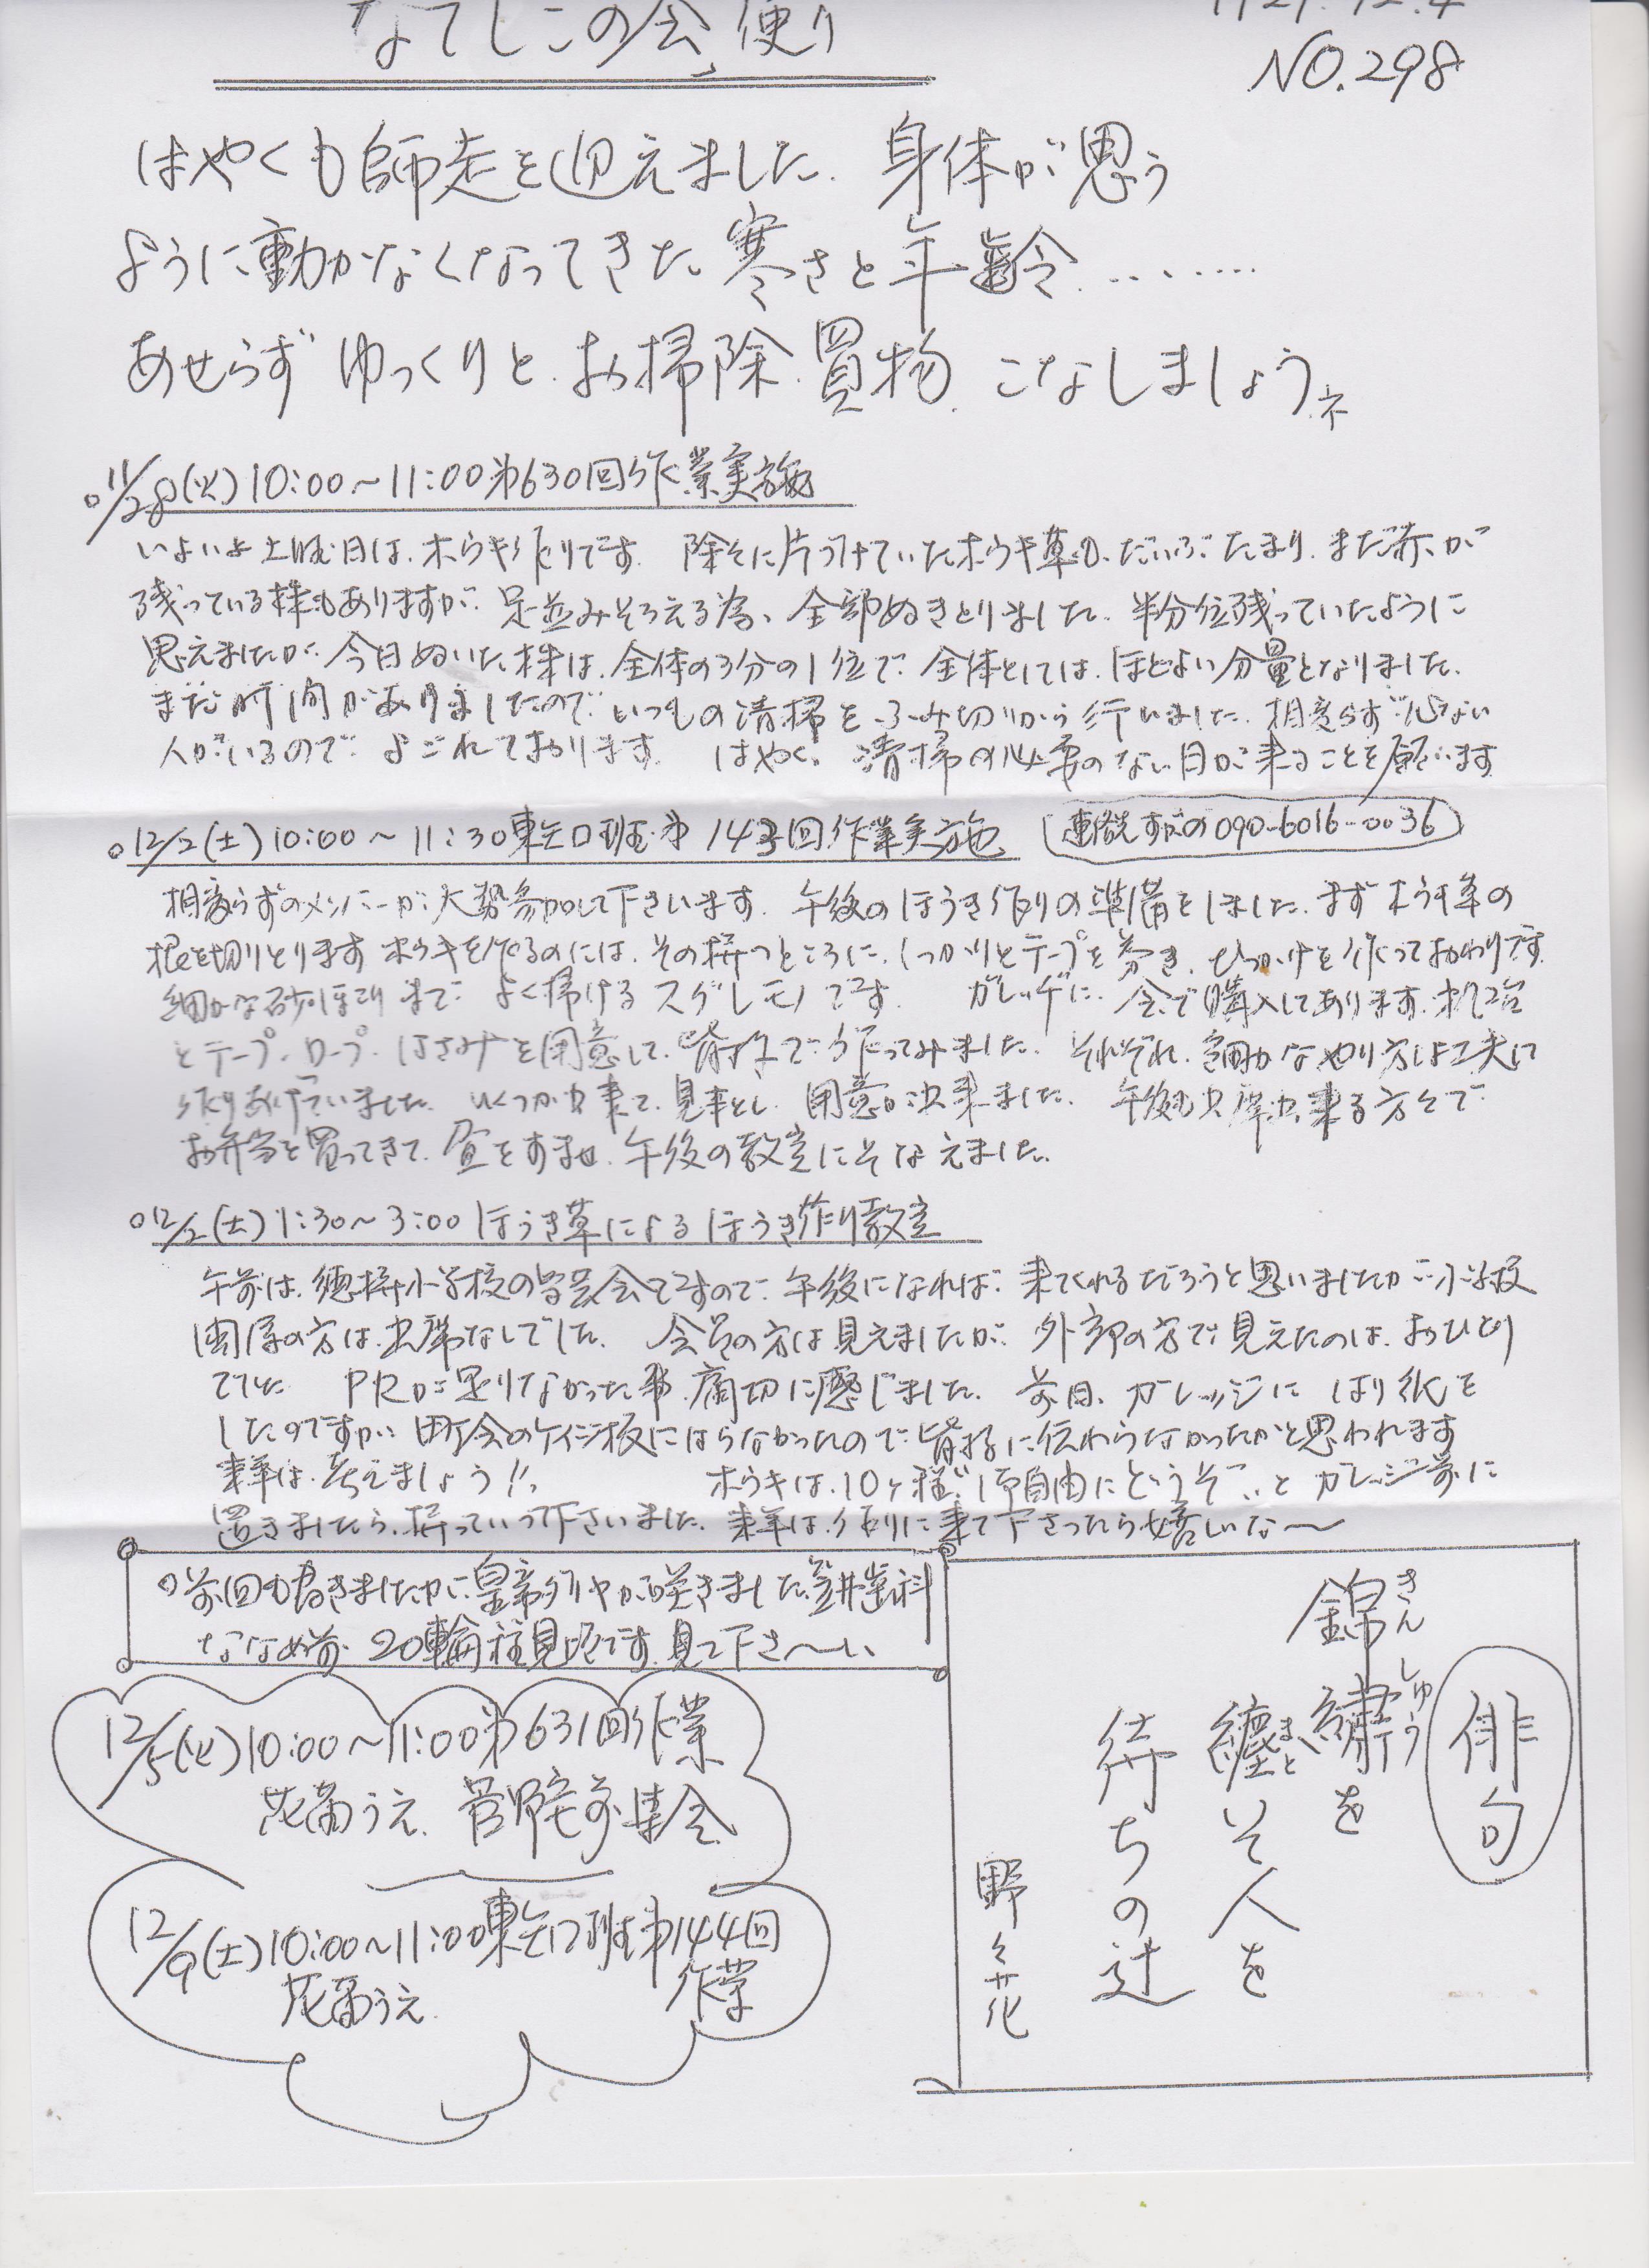 なでしこの会便り
NO.298
はやくも師走を迎えました、身体が思う
ように動かなくなってきた、寒さと年齢………
あせらず ゆっくりと、お掃除、買物、こなしましょうネ
○11/28(火)10:00~11:00第630回作業実施
いよいよ土曜日は、ホウキ作りです。 片づけていたホウキ草も、だいぶたまり、まだ赤が
残っている株もありますが、足並みそろえる為、全部ぬきとりました。半分位残っていたように
思えましたが、今日ぬいた株は、全体の3分の1位で、全体としては、ほどよい分量となりました。
まだ時間がありましたので、いつもの清掃を、ふみ切りから行いました。相変らず心ない
人がいるので、よごれております。 はやく、清掃の必要のない日が来ることを願います
○12/2(土)10:00~11:30東矢口班第143回作業実施 連絡先 090-6016-0036
相変らずのメンバーが、大勢参加して下さいます。 午後のほうき作りの準備をしました。まずホウキ草の
根を切りとります ホウキを作るのには、その持つところに、しっかりとテープを巻き、ひっかけを作っておわりです。
細かな砂ぼこりまで、よく掃けるスグレモノです。 ガレッヂに、会で購入してあります、机2台
とテープ、ロープ、はさみを用意して、皆様で、作ってみました。 それぞれ、細かなやり方は工夫して
作りあげていました。 いくつか出来て、見本とし、用意が出来ました。 午後も出席出来る方々で
お弁当を買ってきて、昼をすませ、午後の教室にそなえました。
○12/2(土)1:30~3:00ほうき草によるほうき作り教室
午前は、徳持小学校の学芸会ですので、午後になれば、来てくれるだろうと思いましたが、小学校
関係の方は、出席なしでした。 会員の方は見えましたが、外部の方で見えたのは、おひとり
でした PRが足りなかった事、痛切に感じました。 前日、ガレッジに はり紙を
したのですが、町会のケイジ板にはらなかったので、皆様に伝わらなかったかと思われます
来年は、考えましょう!! ホウキは、10ヶ程、ご自由にどうぞ…と ガレッジ前に
置きましたら、持っていって下さいました。来年は、作りに来て下さったら嬉しいな〜
○前回も書きましたが、皇帝ダリヤが咲きました、笠井歯科
ななめ前、20輪程見頃です。見て下さ〜い
12/5(火)10:00~11:00第631回作業
花苗うえ 菅野宅前集会
12/9(土)10:00~11:00東矢口班第144回
作業
花苗うえ
俳句
錦繍を
きんしゅう
纏いて人を
まと
待ちの辻
野々花